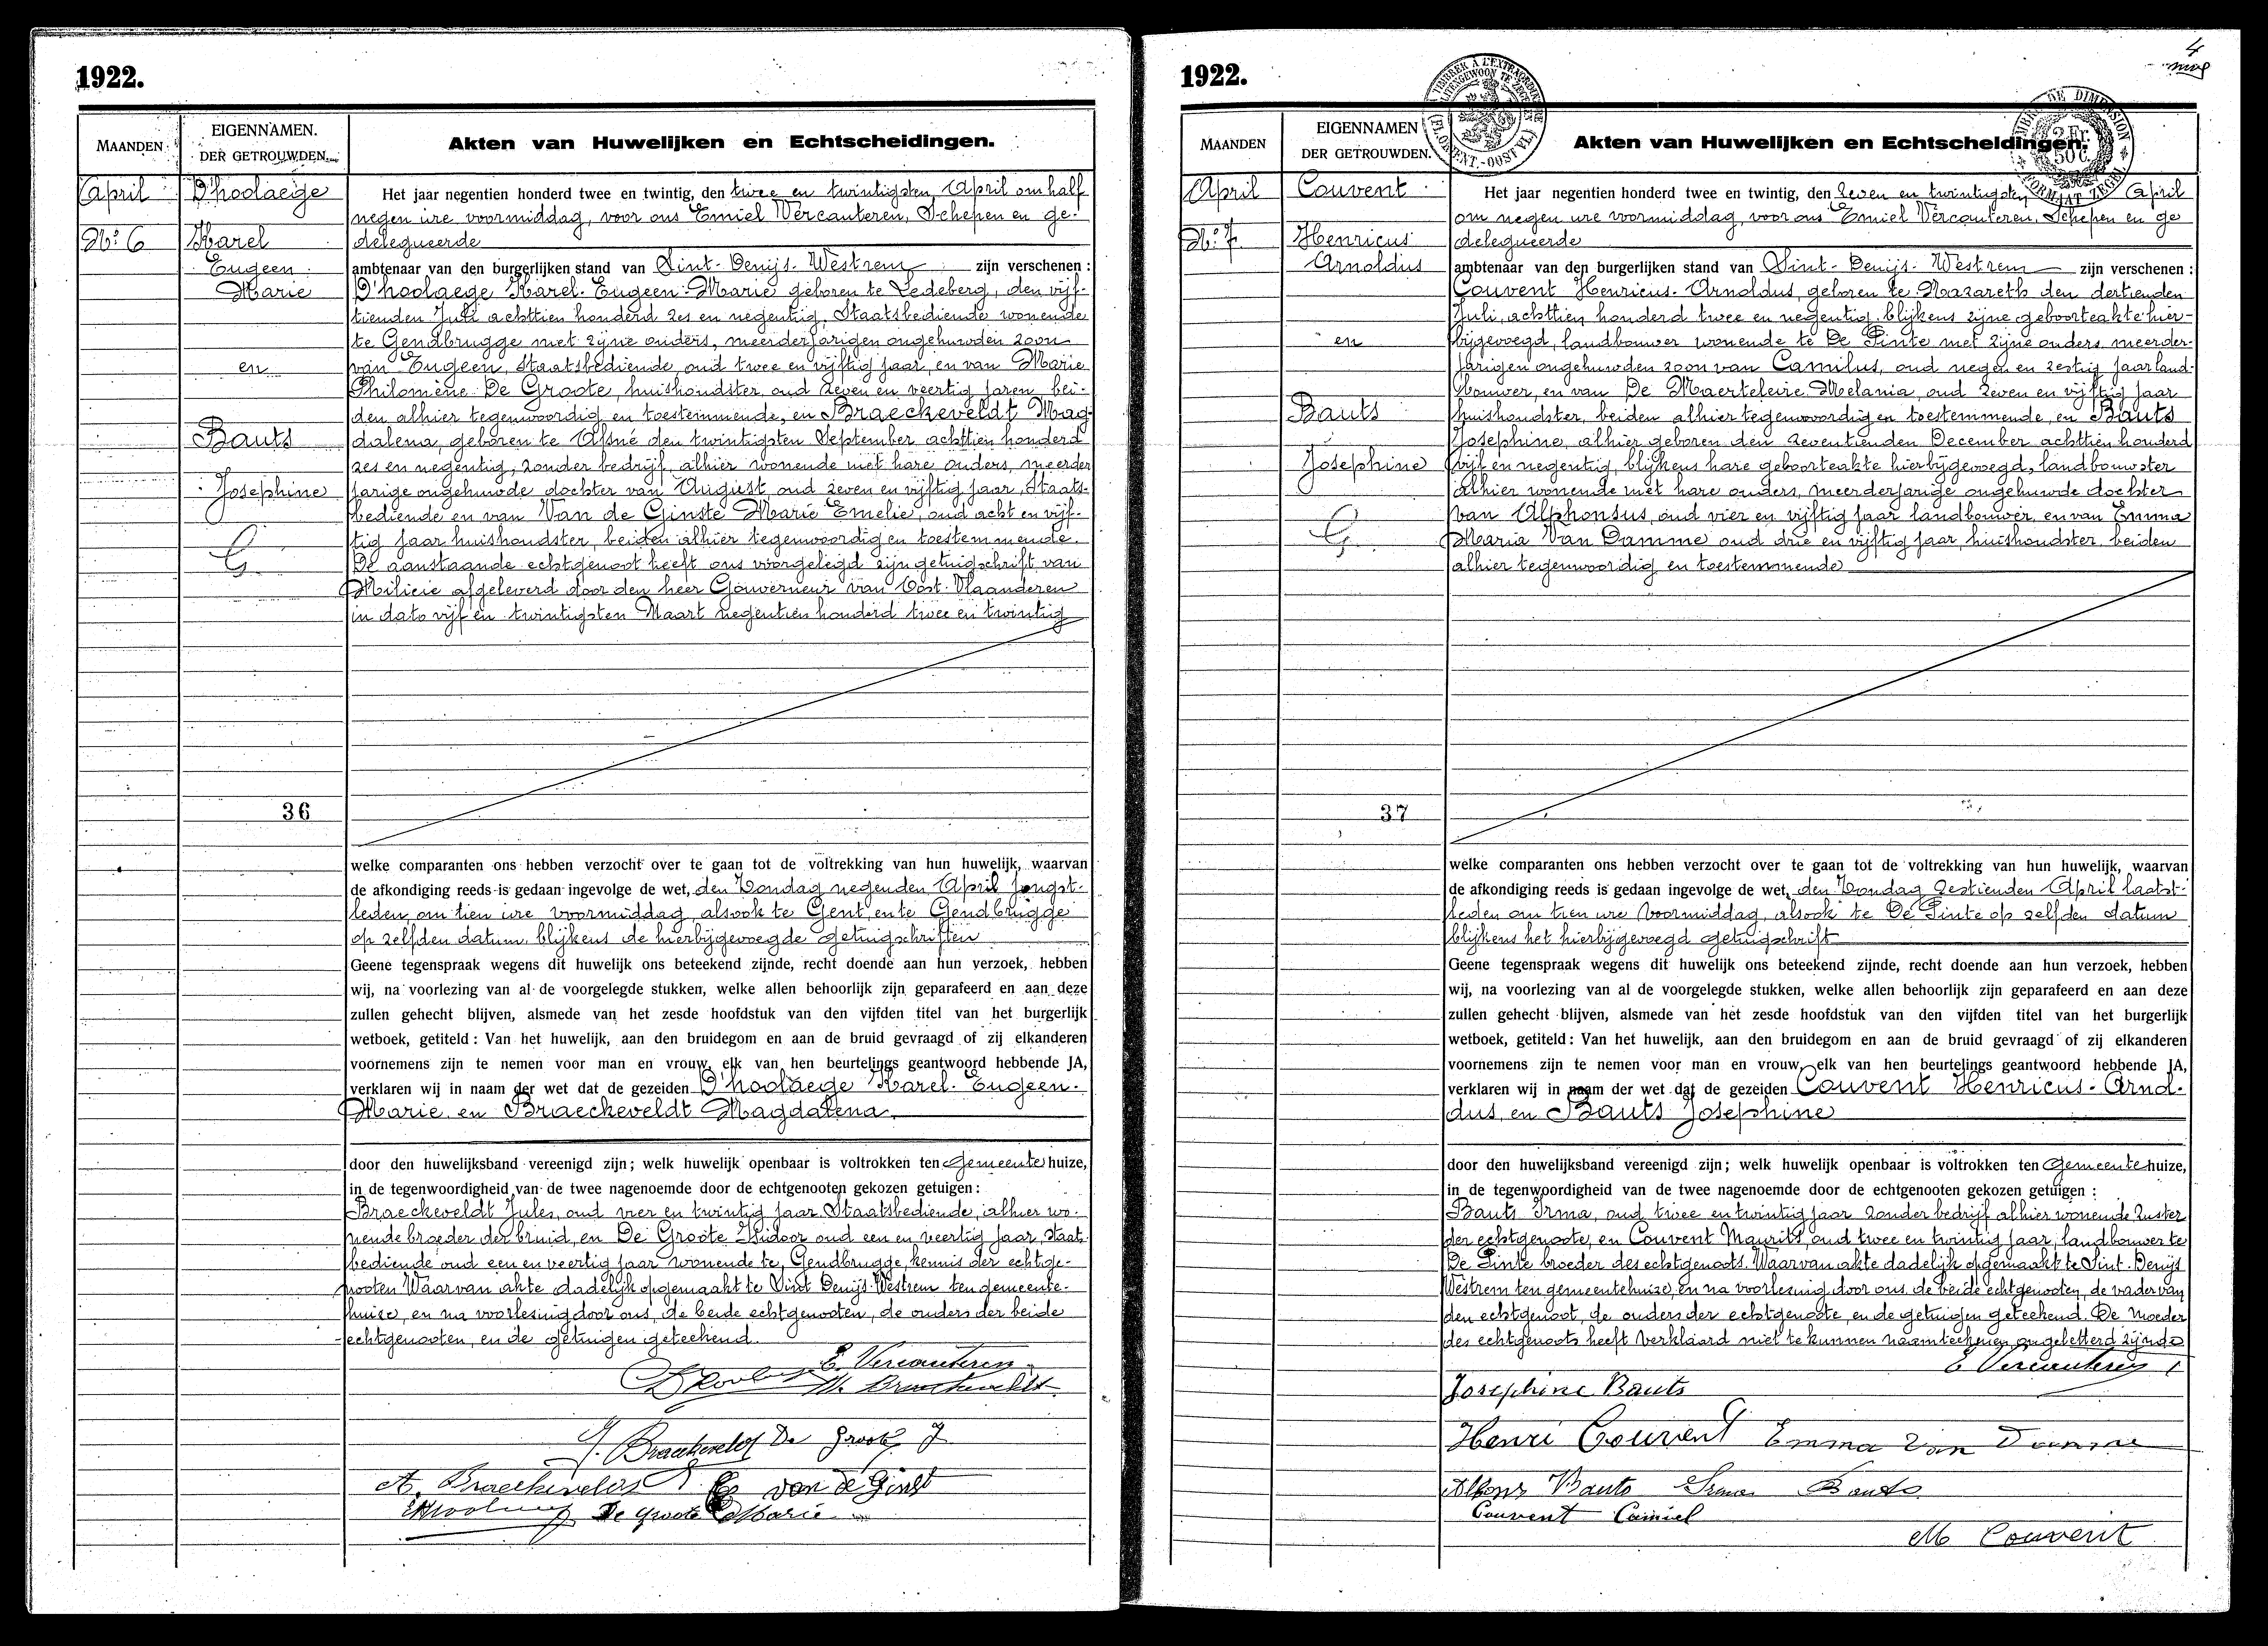 1922.
MAANDEN
EIGENNAMEN.
DER GETROUWDEN.
Akten van Huwelijken en Echtscheidingen.
April
No. 6
D'hoolaege
Karel
Eugeen
Marie
en
Bauts
Josephine
36
Het jaar negentien honderd twee en twintig, den twee en twintigsten April om half
negen ure voormiddag, voor ons Emiel Vercauteren, Schepen en ge-
delegueerde
ambtenaar van den burgerlijken stand van Sint-Denijs-Westrem zijn verschenen :
D'hoolaege Karel-Eugeen-Marie geboren te Ledeberg, den vijf-
tienden Juli achttien honderd zes en negentig, Staatsbediende wonende
te Gendbrugge met zijne ouders, meerderjarigen ongehuwden zoon
van Eugeen, Staatsbediende, oud twee en vijftig jaar, en van Marie
Philomène De Groote, huishoudster, oud zeven en veertig jaren, bei-
den alhier tegenwoordig en toestemmende, en Braeckeveldt Mag-
dalena, geboren te Afsné den twintigsten September achttien honderd
zes en negentig, zonder bedrijf, alhier wonende met hare ouders, meerder
jarige ongehuwde dochter van August oud zeven en vijftig jaar, Staats-
bediende en van Van de Ginste Marie Emelie, oud acht en vijf-
tig jaar huishoudster, beiden alhier tegenwoordig en toestemmende.
De aanstaande echtgenoot heeft ons voorgelegd zijn getuigschrift van
Milicie afgeleverd door den heer Gouverneur van Oost-Vlaanderen
in dato vijf en twintigsten Maart negentien honderd twee en twintig
welke comparanten ons hebben verzocht over te gaan tot de voltrekking van hun huwelijk, waarvan
de afkondiging reeds is gedaan ingevolge de wet, den Zondag negenden April jongst-
leden, om tien ure voormiddag, alsook te Gent en te Gendbrugge
op zelfden datum, blijkens de hierbijgevoegde getuigschriften
Geene tegenspraak wegens dit huwelijk ons beteekend zijnde, recht doende aan hun verzoek, hebben
wij, na voorlezing van al de voorgelegde stukken, welke allen behoorlijk zijn geparafeerd en aan deze
zullen gehecht blijven, alsmede van het zesde hoofdstuk van den vijfden titel van het burgerlijk
wetboek, getiteld : Van het huwelijk, aan den bruidegom en aan de bruid gevraagd of zij elkanderen
voornemens zijn te nemen voor man en vrouw, elk van hen beurtelings geantwoord hebbende JA,
verklaren wij in naam der wet dat de gezeiden D'hoolaege Karel-Eugeen-
Marie, en Braeckeveldt Magdalena,
door den huwelijksband vereenigd zijn; welk huwelijk openbaar is voltrokken ten Gemeentehuize,
in de tegenwoordigheid van de twee nagenoemde door de echtgenooten gekozen getuigen :
Braeckeveldt Jules, oud vier en twintig jaar Staatsbediende, alhier wo-
nende broeder der bruid, en De Groote Isidoor oud een en veertig jaar, Staats-
bediende oud een en veertig jaar wonende te Gendbrugge, kennis der echtge-
nooten Waarvan akte dadelijk opgemaakt te Sint Denijs-Westrem ten gemeente-
huize, en na voorlesing door ons, de beide echtgenooten, de ouders der beide
echtgenooten, en de getuigen geteekend.
E. Vercauteren
M. Braeckeveldt
J. Braeckeveldt De Groote J
A. Braeckeveldt E van de Ginst
De Groote Marie
4
1922.
TIMBRE A L'EXTRAORDINAIRE
BUITENGEWOON TE ZEGELEN
(FL. ORIENT.-OOST VL.)
TIMBRE DE DIMENSION
2 Fr.
50 C.
FORMAAT ZEGEL
MAANDEN
EIGENNAMEN
DER GETROUWDEN.
Akten van Huwelijken en Echtscheidingen.
April
No. 7
Couvent
Henricus
Arnoldus
en
Bauts
Josephine
37
Het jaar negentien honderd twee en twintig, den zeven en twintigsten April
om negen ure voormiddag, voor ons Emiel Vercauteren, Schepen en ge
delegueerde
ambtenaar van den burgerlijken stand van Sint-Denijs-Westrem zijn verschenen :
Couvent Henricus-Arnoldus, geboren te Nazareth den dertienden
Juli, achttien honderd twee en negentig, blijkens zijne geboorteakte hier-
bijgevoegd, landbouwer wonende te De Pinte met zijne ouders meerder-
jarigen ongehuwden zoon van Camilus, oud negen en zestig jaar land-
bouwer, en van De Maerteleire Melania, oud zeven en vijftig jaar
huishoudster, beiden alhier tegenwoordig en toestemmende, en Bauts
Josephine, alhier geboren den zeventienden December achttien honderd
vijf en negentig, blijkens hare geboorteakte hierbijgevoegd, landbouwster
alhier wonende met hare ouders, meerderjarige ongehuwde dochter
van Alphonsus, oud vier en vijftig jaar landbouwer, en van Emma
Maria Van Damme oud drie en vijftig jaar, huishoudster, beiden
alhier tegenwoordig en toestemmende
welke comparanten ons hebben verzocht over te gaan tot de voltrekking van hun huwelijk, waarvan
de afkondiging reeds is gedaan ingevolge de wet, den Zondag zestienden April laatst-
leden om tien ure voormiddag, alsook te De Pinte op zelfden datum
blijkens het hierbijgevoegd getuigschrift
Geene tegenspraak wegens dit huwelijk ons beteekend zijnde, recht doende aan hun verzoek, hebben
wij, na voorlezing van al de voorgelegde stukken, welke allen behoorlijk zijn geparafeerd en aan deze
zullen gehecht blijven, alsmede van het zesde hoofdstuk van den vijfden titel van het burgerlijk
wetboek, getiteld : Van het huwelijk, aan den bruidegom en aan de bruid gevraagd of zij elkanderen
voornemens zijn te nemen voor man en vrouw, elk van hen beurtelings geantwoord hebbende JA,
verklaren wij in naam der wet dat de gezeiden Couvent Henricus-Arnol-
dus, en Bauts Josephine
door den huwelijksband vereenigd zijn; welk huwelijk openbaar is voltrokken ten Gemeentehuize,
in de tegenwoordigheid van de twee nagenoemde door de echtgenooten gekozen getuigen :
Bauts Irma, oud twee en twintig jaar zonder bedrijf alhier wonende zuster
der echtgenoote, en Couvent Maurits, oud twee en twintig jaar, landbouwer te
De Pinte broeder des echtgenoots. Waarvan akte dadelijk opgemaakt te Sint-Denijs
Westrem ten gemeentehuize, en na voorlesing door ons, de beide echtgenooten, de vader van
den echtgenoot, de ouders der echtgenoote, en de getuigen geteekend. De Moeder
des echtgenoots heeft verklaard niet te kunnen naamteekenen, ongeletterd zijnde
E Vercauteren
Josephine Bauts
Henri Couvent Emma Van Damme
Alfons Bauts Irma Bauts
Couvent Camiel
M Couvent